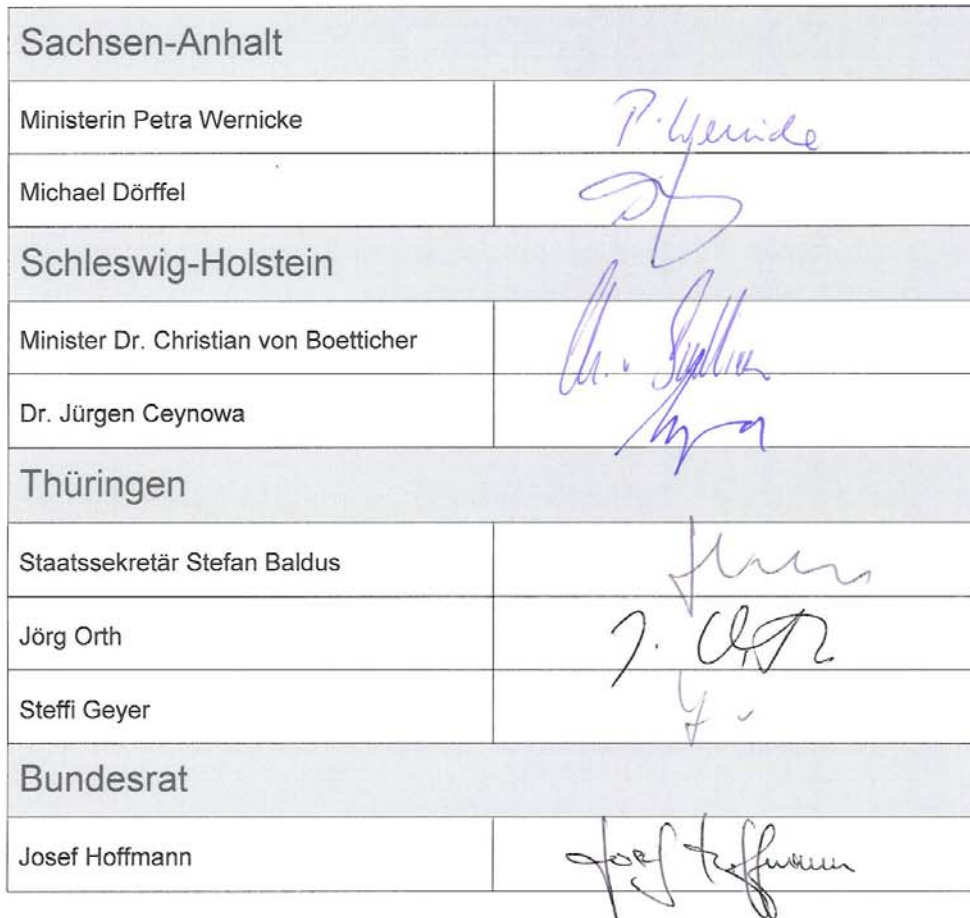 Sachsen-Anhalt
Ministerin Petra Wernicke P. Wernicke
Michael Dörffel
Schleswig-Holstein
Minister Dr. Christian von Boetticher
Dr. Jürgen Ceynowa
Thüringen
Staatssekretär Stefan Baldus
Jörg Orth J. Orth
Steffi Geyer
Bundesrat
Josef Hoffmann Josef Hoffmann